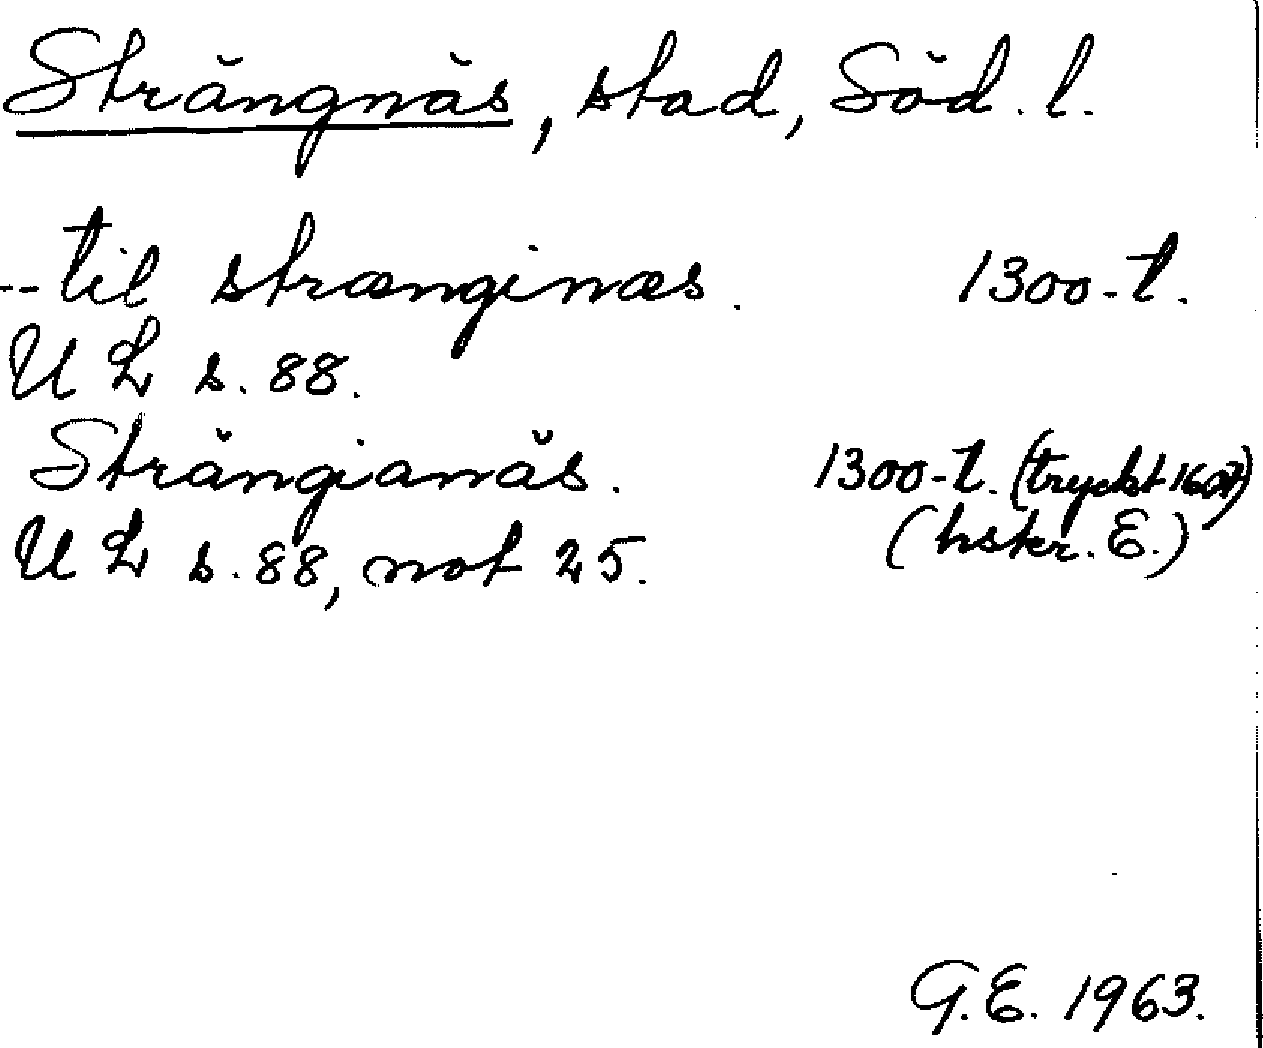 Strängnäs, stad, Söd. l.
-- til strænginæs. 1300-t.
UL s. 88.
Strängianäs. 1300-t. (tryckt 1607)
UL s. 88, not 25. (hskr. E.)
G.E. 1963.